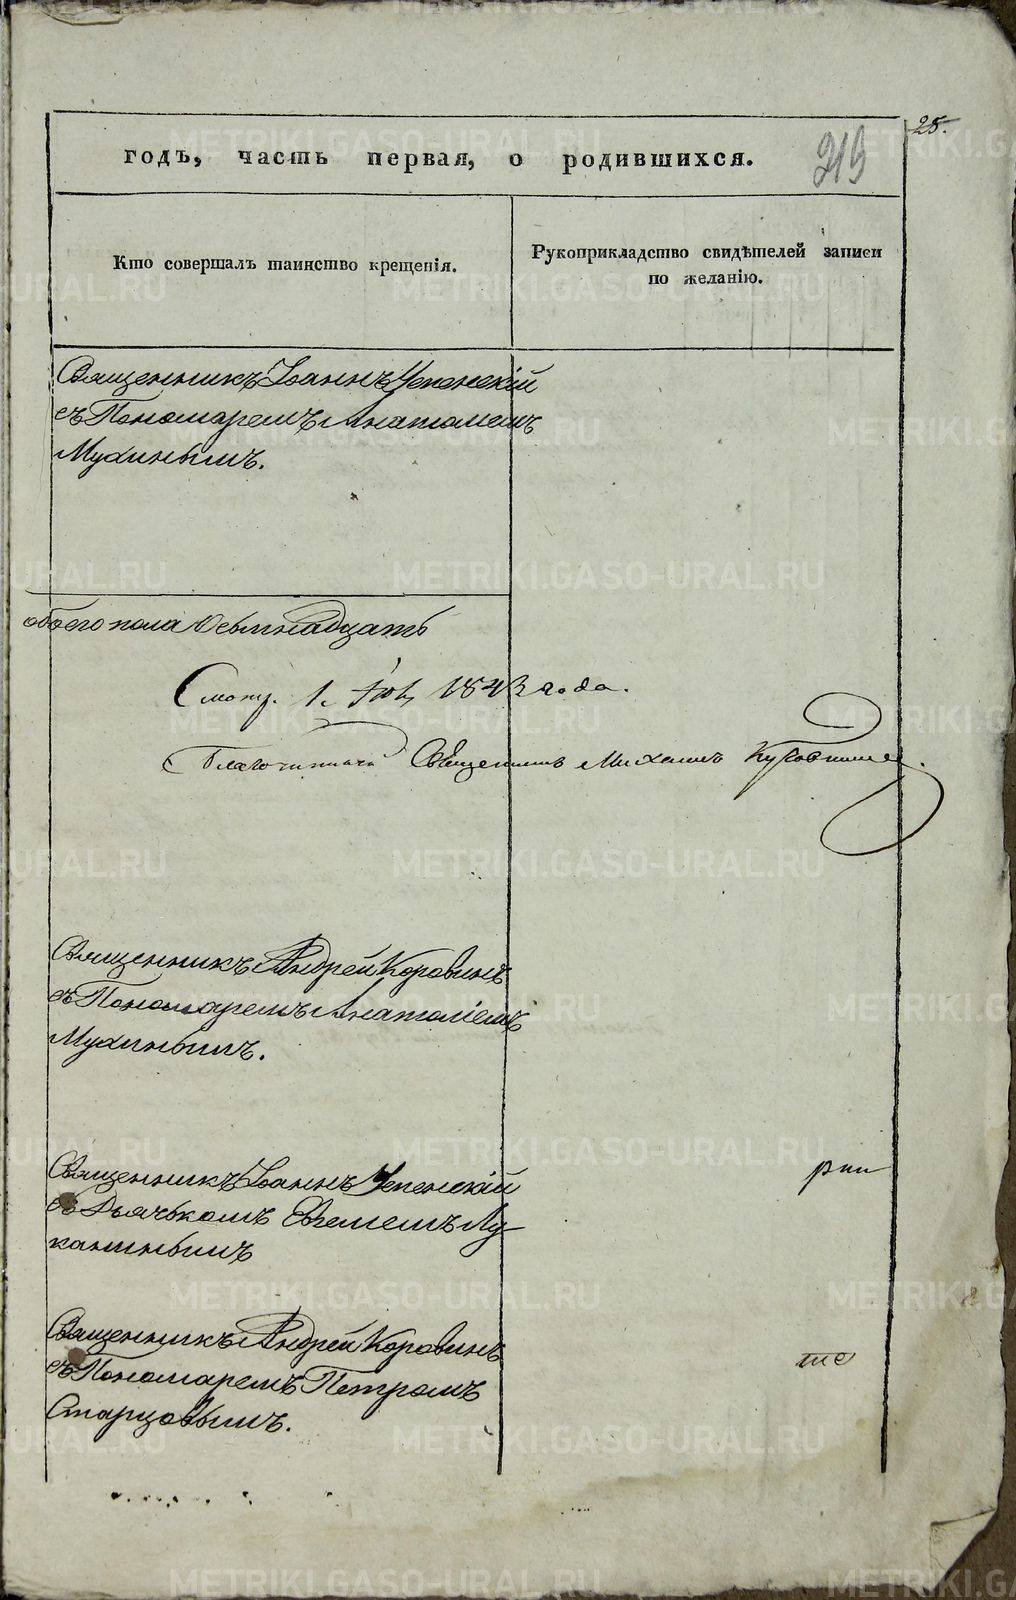 25.
годъ, часть первая, о родившихся.
219
Кто совершалъ таинство крещенія.
Рукоприкладство свидѣтелей записи
по желанію.
Священникъ Іоаннъ Успенскій
съ Пономаремъ Анатоліемъ
Мухинымъ.
обоего пола Осьмнадцать
1843 года.
Благочинный Священникъ Михаилъ
Священникъ Андрей Коровинъ
съ Пономаремъ Анатоліемъ
Мухинымъ.
Священникъ Іоаннъ Успенскій
съ Дьячькомъ Лу-
канинымъ
Священникъ Андрей Коровинъ
съ Пономаремъ Петромъ
Старцовымъ.
METRIKI.GASO-URAL.RU